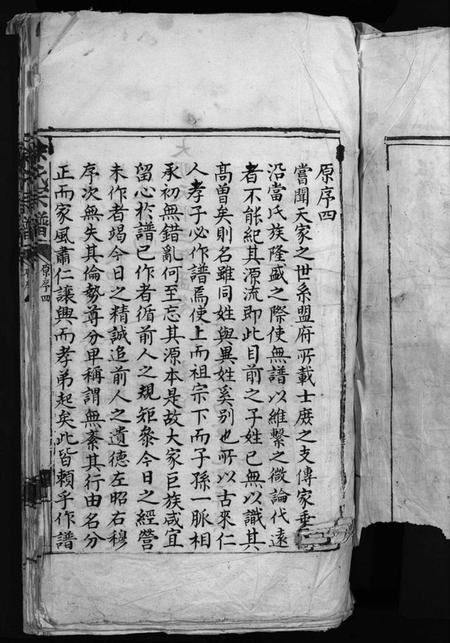 原序四
嘗聞天家之世系盟府所載士庶之支傳家乗
沿當氏族隆盛之際使無譜以維繫之微論代遠
者不能紀其源流即此目前之子姓已無以識其
高曽矣則名雖同姓與異姓奚别也所以古來仁
人孝子必作譜焉使上而祖宗下而子孫一脈相
承初無錯亂何至忘其源本是故大家巨族咸宜
留心於譜已作者循前人之規矩叅今日之經營
未作者竭今日之精誠追前人之遺德左昭右穆
序次無失其倫勢尊分卑稱謂無紊其行由名分
正而家風肅仁讓興而孝弟起矣此皆賴乎作譜
氏宗譜
原序四